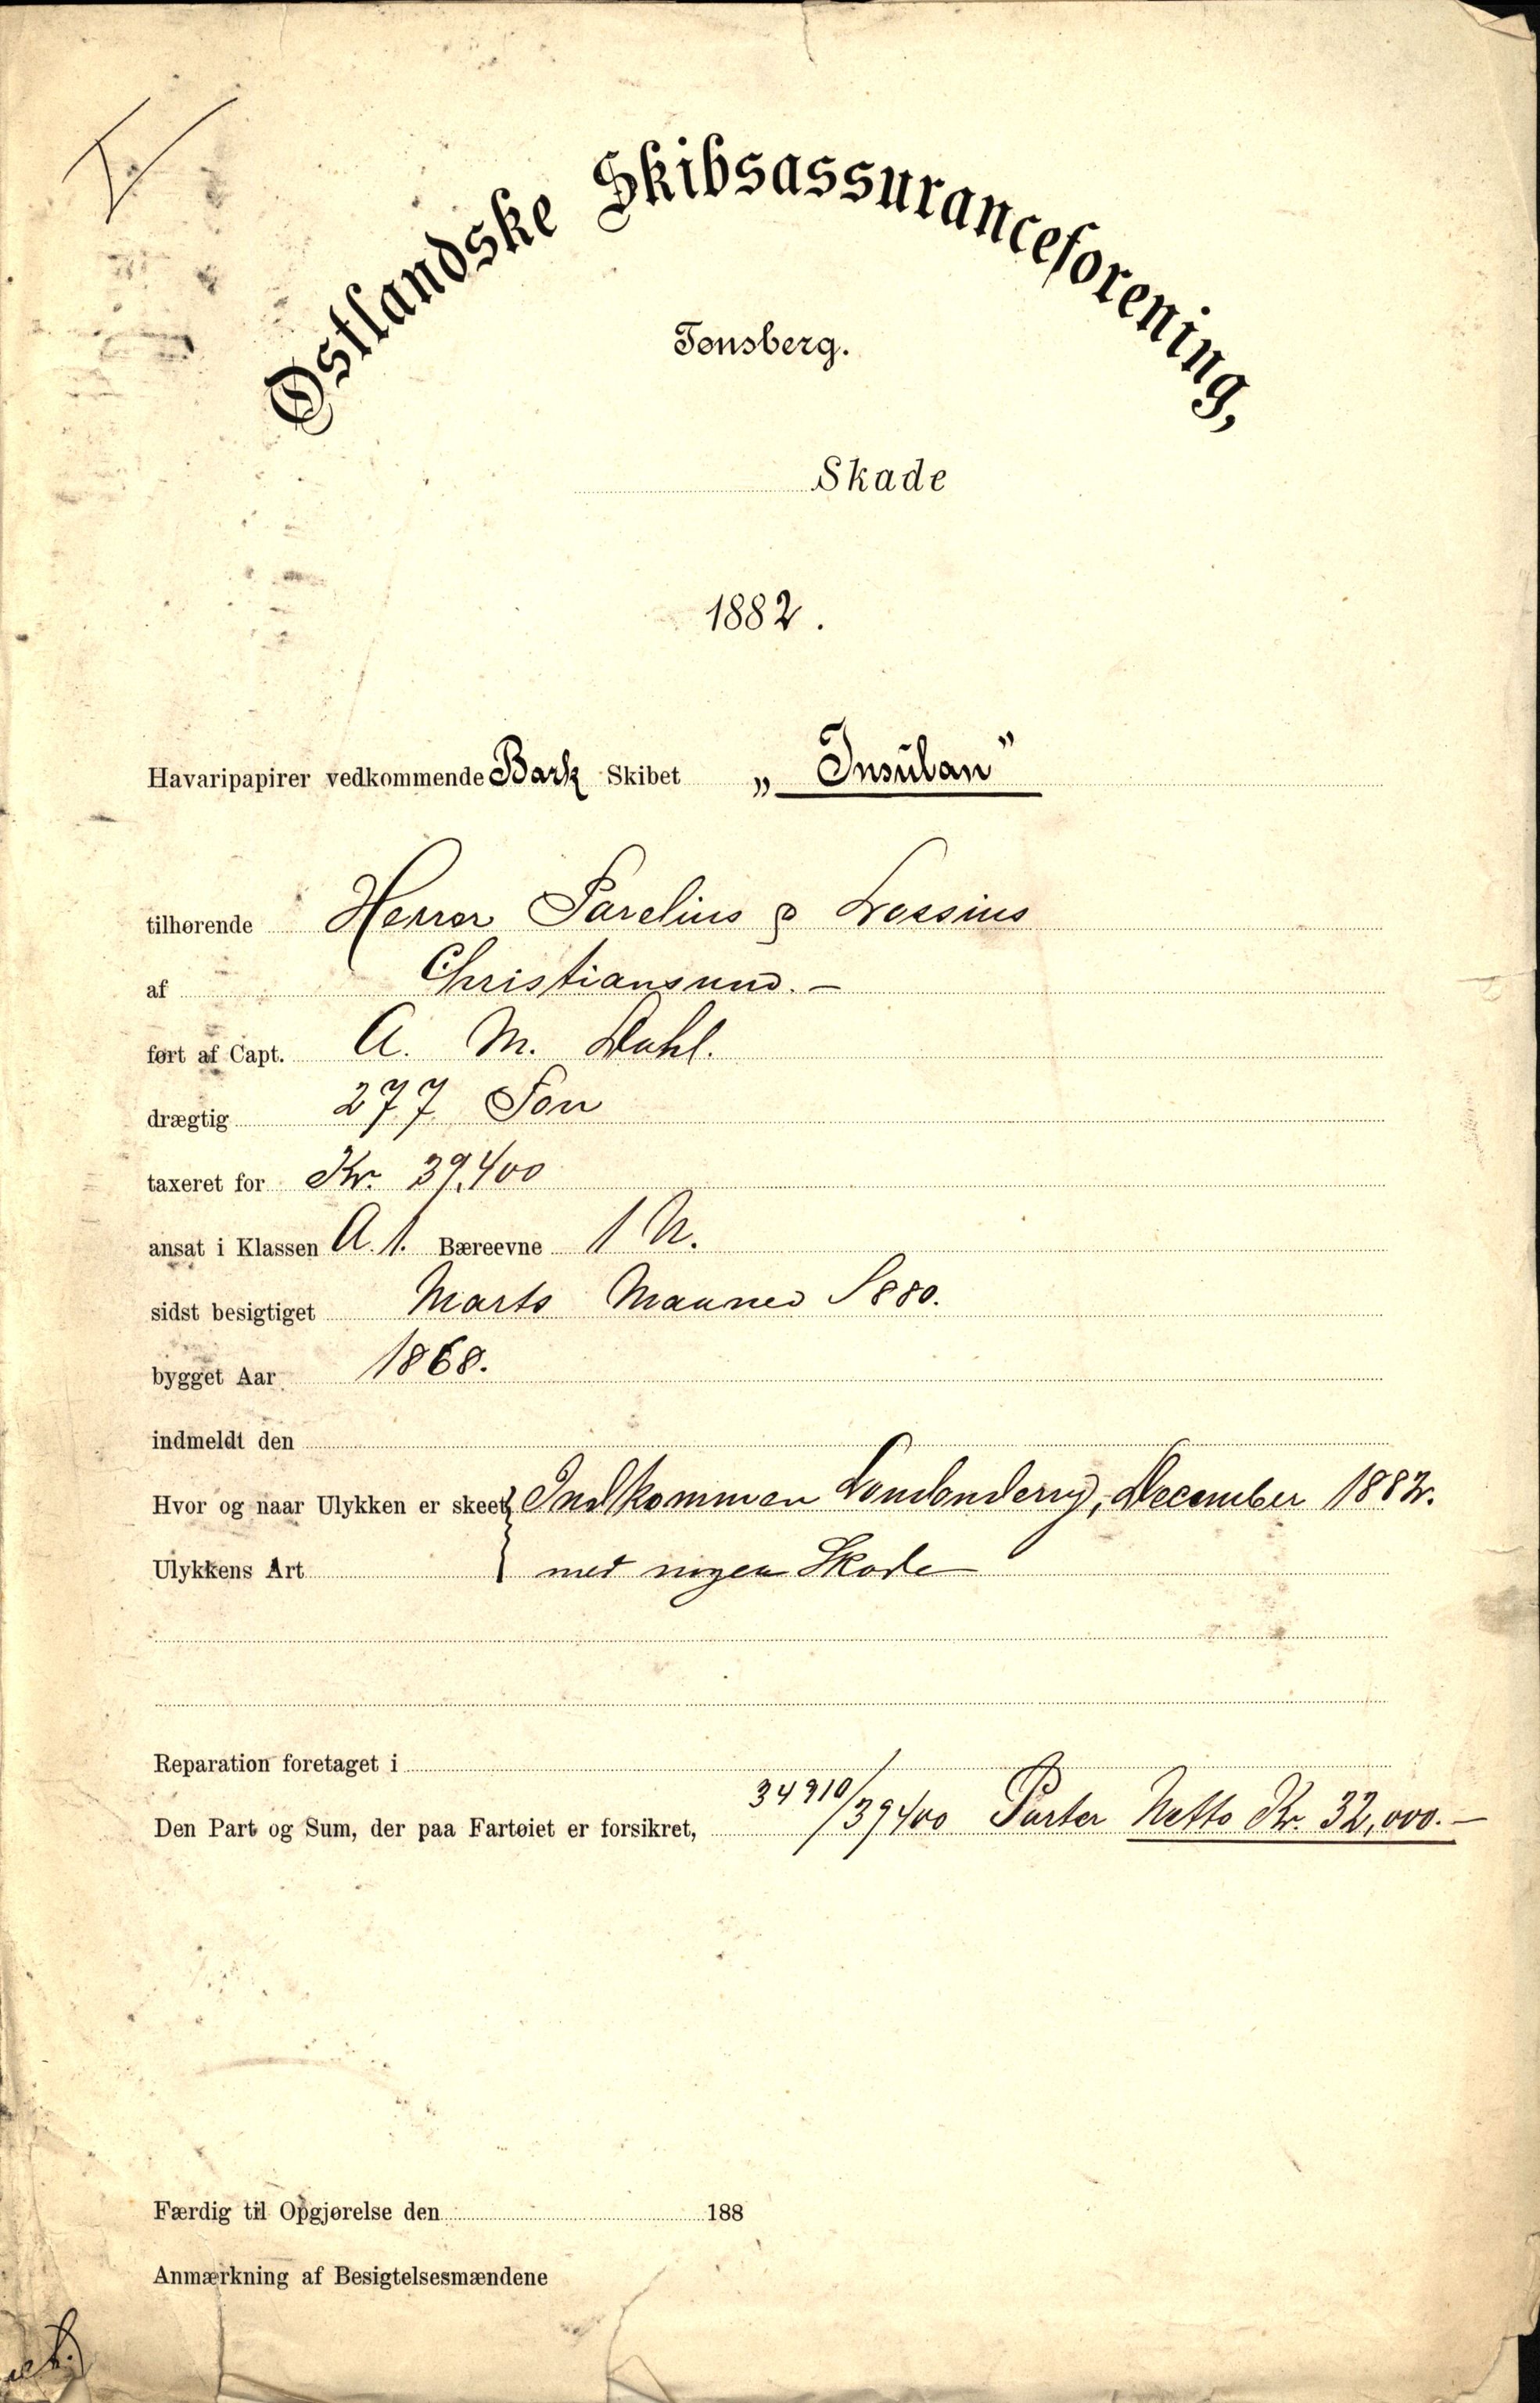 Østlandske Skibsassuranceforening,
Tønsberg.
Skade
1882.
Havaripapirer vedkommende Bark Skibet „Insulan”
tilhørende Herrer Parelius & Lossius
af Christiansund. –
ført af Capt. A. M. Dahl.
drægtig 277 Ton
taxeret for Kr. 39,400
ansat i Klassen A. 1. Bæreevne 1 N.
sidst besigtiget Marts Maaned 1880.
bygget Aar 1868.
indmeldt den
Hvor og naar Ulykken er skeet Indkommen Londonderry, December 1882.
Ulykkens Art med nogen Skade
Reparation foretaget i
Den Part og Sum, der paa Fartøiet er forsikret, 34910/39400 Parter Netto Kr. 32,000. –
Færdig til Opgjørelse den 188
Anmærkning af Besigtelsesmændene